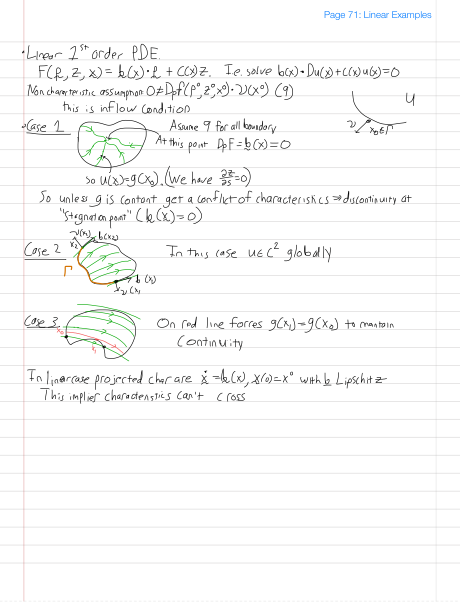 Page 71: Linear Examples
• Linear 1st order PDE.
F(p, z, x) = b(x)·p + c(x)z. I.e. solve b(x)·Du(x)+c(x)u(x)=0
Non characteristic assumption 0≠DpF(p°,z°,x°)·ν(x°) (9)
this is inflow condition
U
ν
x₀∈Γ
• Case 1
Assume 9 for all boundary
At this point DpF=b(x)=0
So u(x)=g(x₀). (We have ∂z/∂s=0)
So unless g is contant get a conflict of characteristics ⇒ discontinuity at
"Stagnation point" (b(x)=0)
Case 2
ν(x₂)
b(x₂)
x₂
Γ
b(x₁)
ν(x₁)
In this case u∈C² globally
Case 3
x₀
x₁
On red line forces g(x₁)=g(x₀) to mantain
Continuity
In linear case projected char are ẋ=b(x), x(0)=x° with b Lipschitz
This implies characteristics can't cross